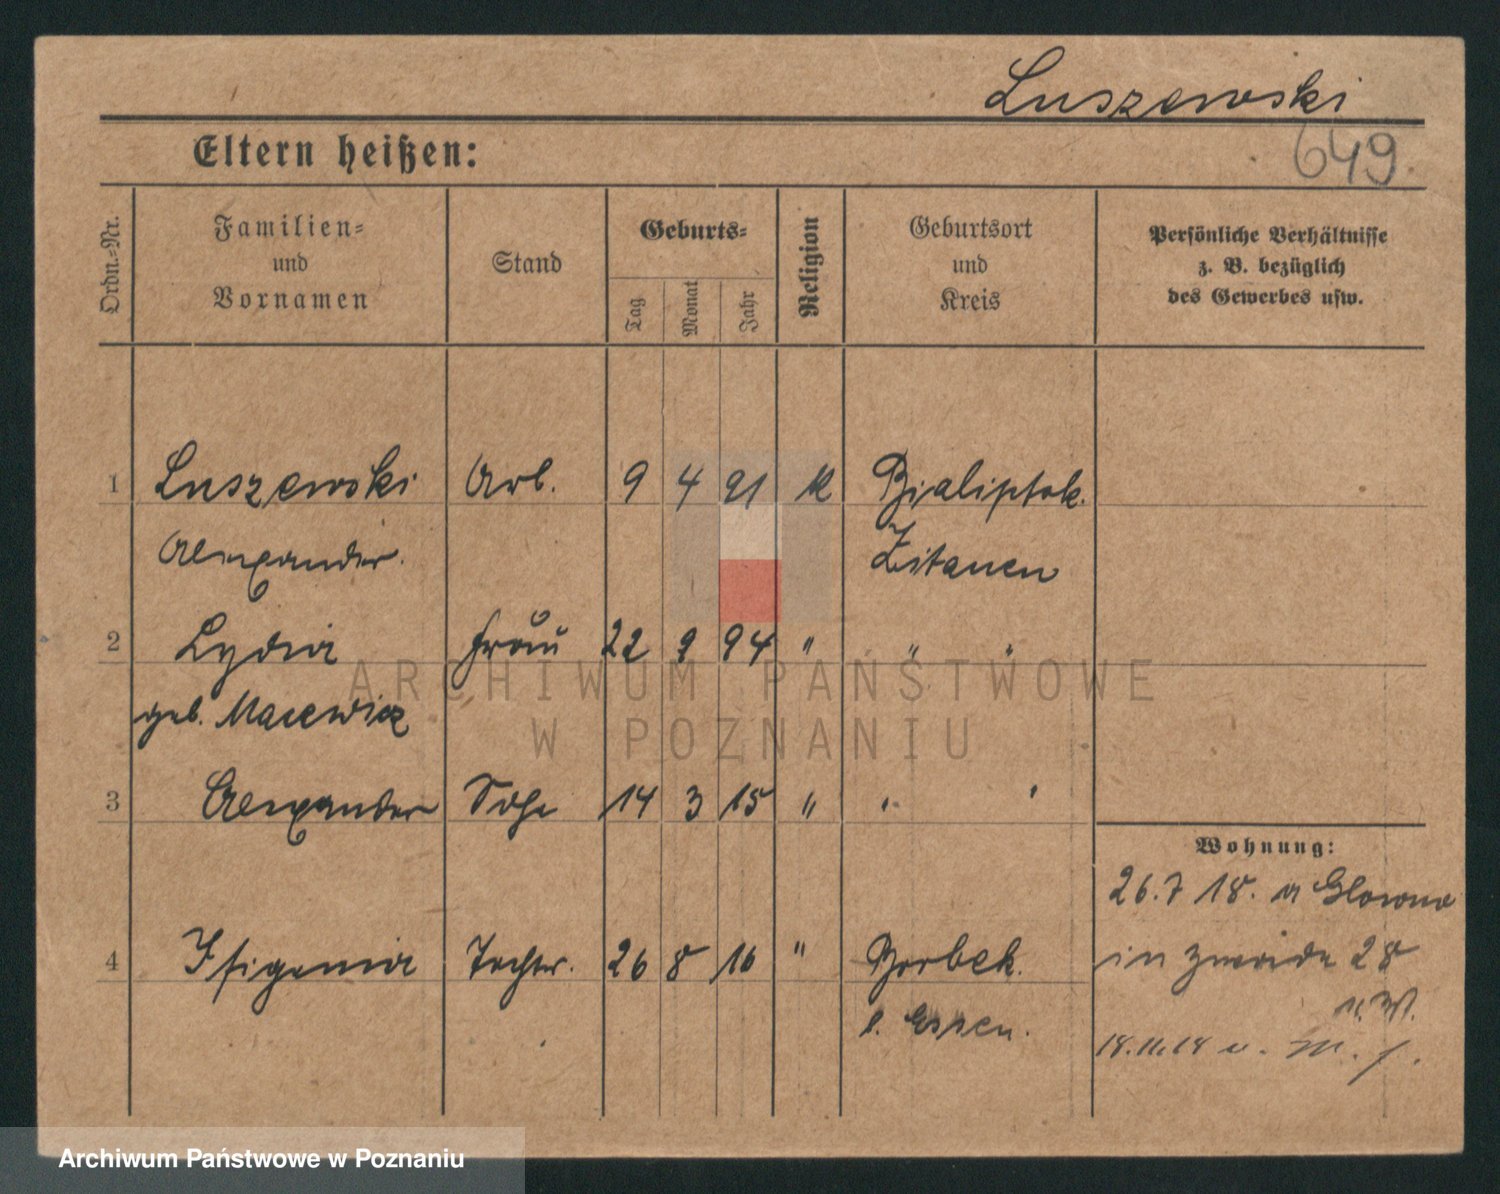 Luszewski
649.
Eltern heißen:
Ordn.-Nr.
Familien-
und
Vornamen
Stand
Geburts-
Tag
Monat
Jahr
Religion
Geburtsort
und
Kreis
Persönliche Verhältnisse
z. B. bezüglich
des Gewerbes usw.
1 Luszewski Arb. 9 4 91 K Bialistok.
Alexander. Litauen
2 Lydia Frau 22 9 94 " " "
geb. Macewicz
3 Alexander Sohn 14 3 15 " " "
Wohnung:
26.7 18. a Glowno
4 Ifigenia Tochter. 26 8 16 " Borbek.
in 28
b. Essen.
n. W.
18.11.18 v.
ARCHIWUM PAŃSTWOWE
W POZNANIU
Archiwum Państwowe w Poznaniu